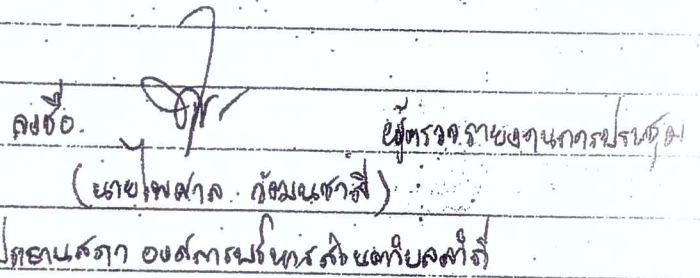 ลงชื่อ. ผู้ตรวจรายงานการประชุม
(นายไพศาล
ประธานสภา องค์การบริหารส่วนตำบล